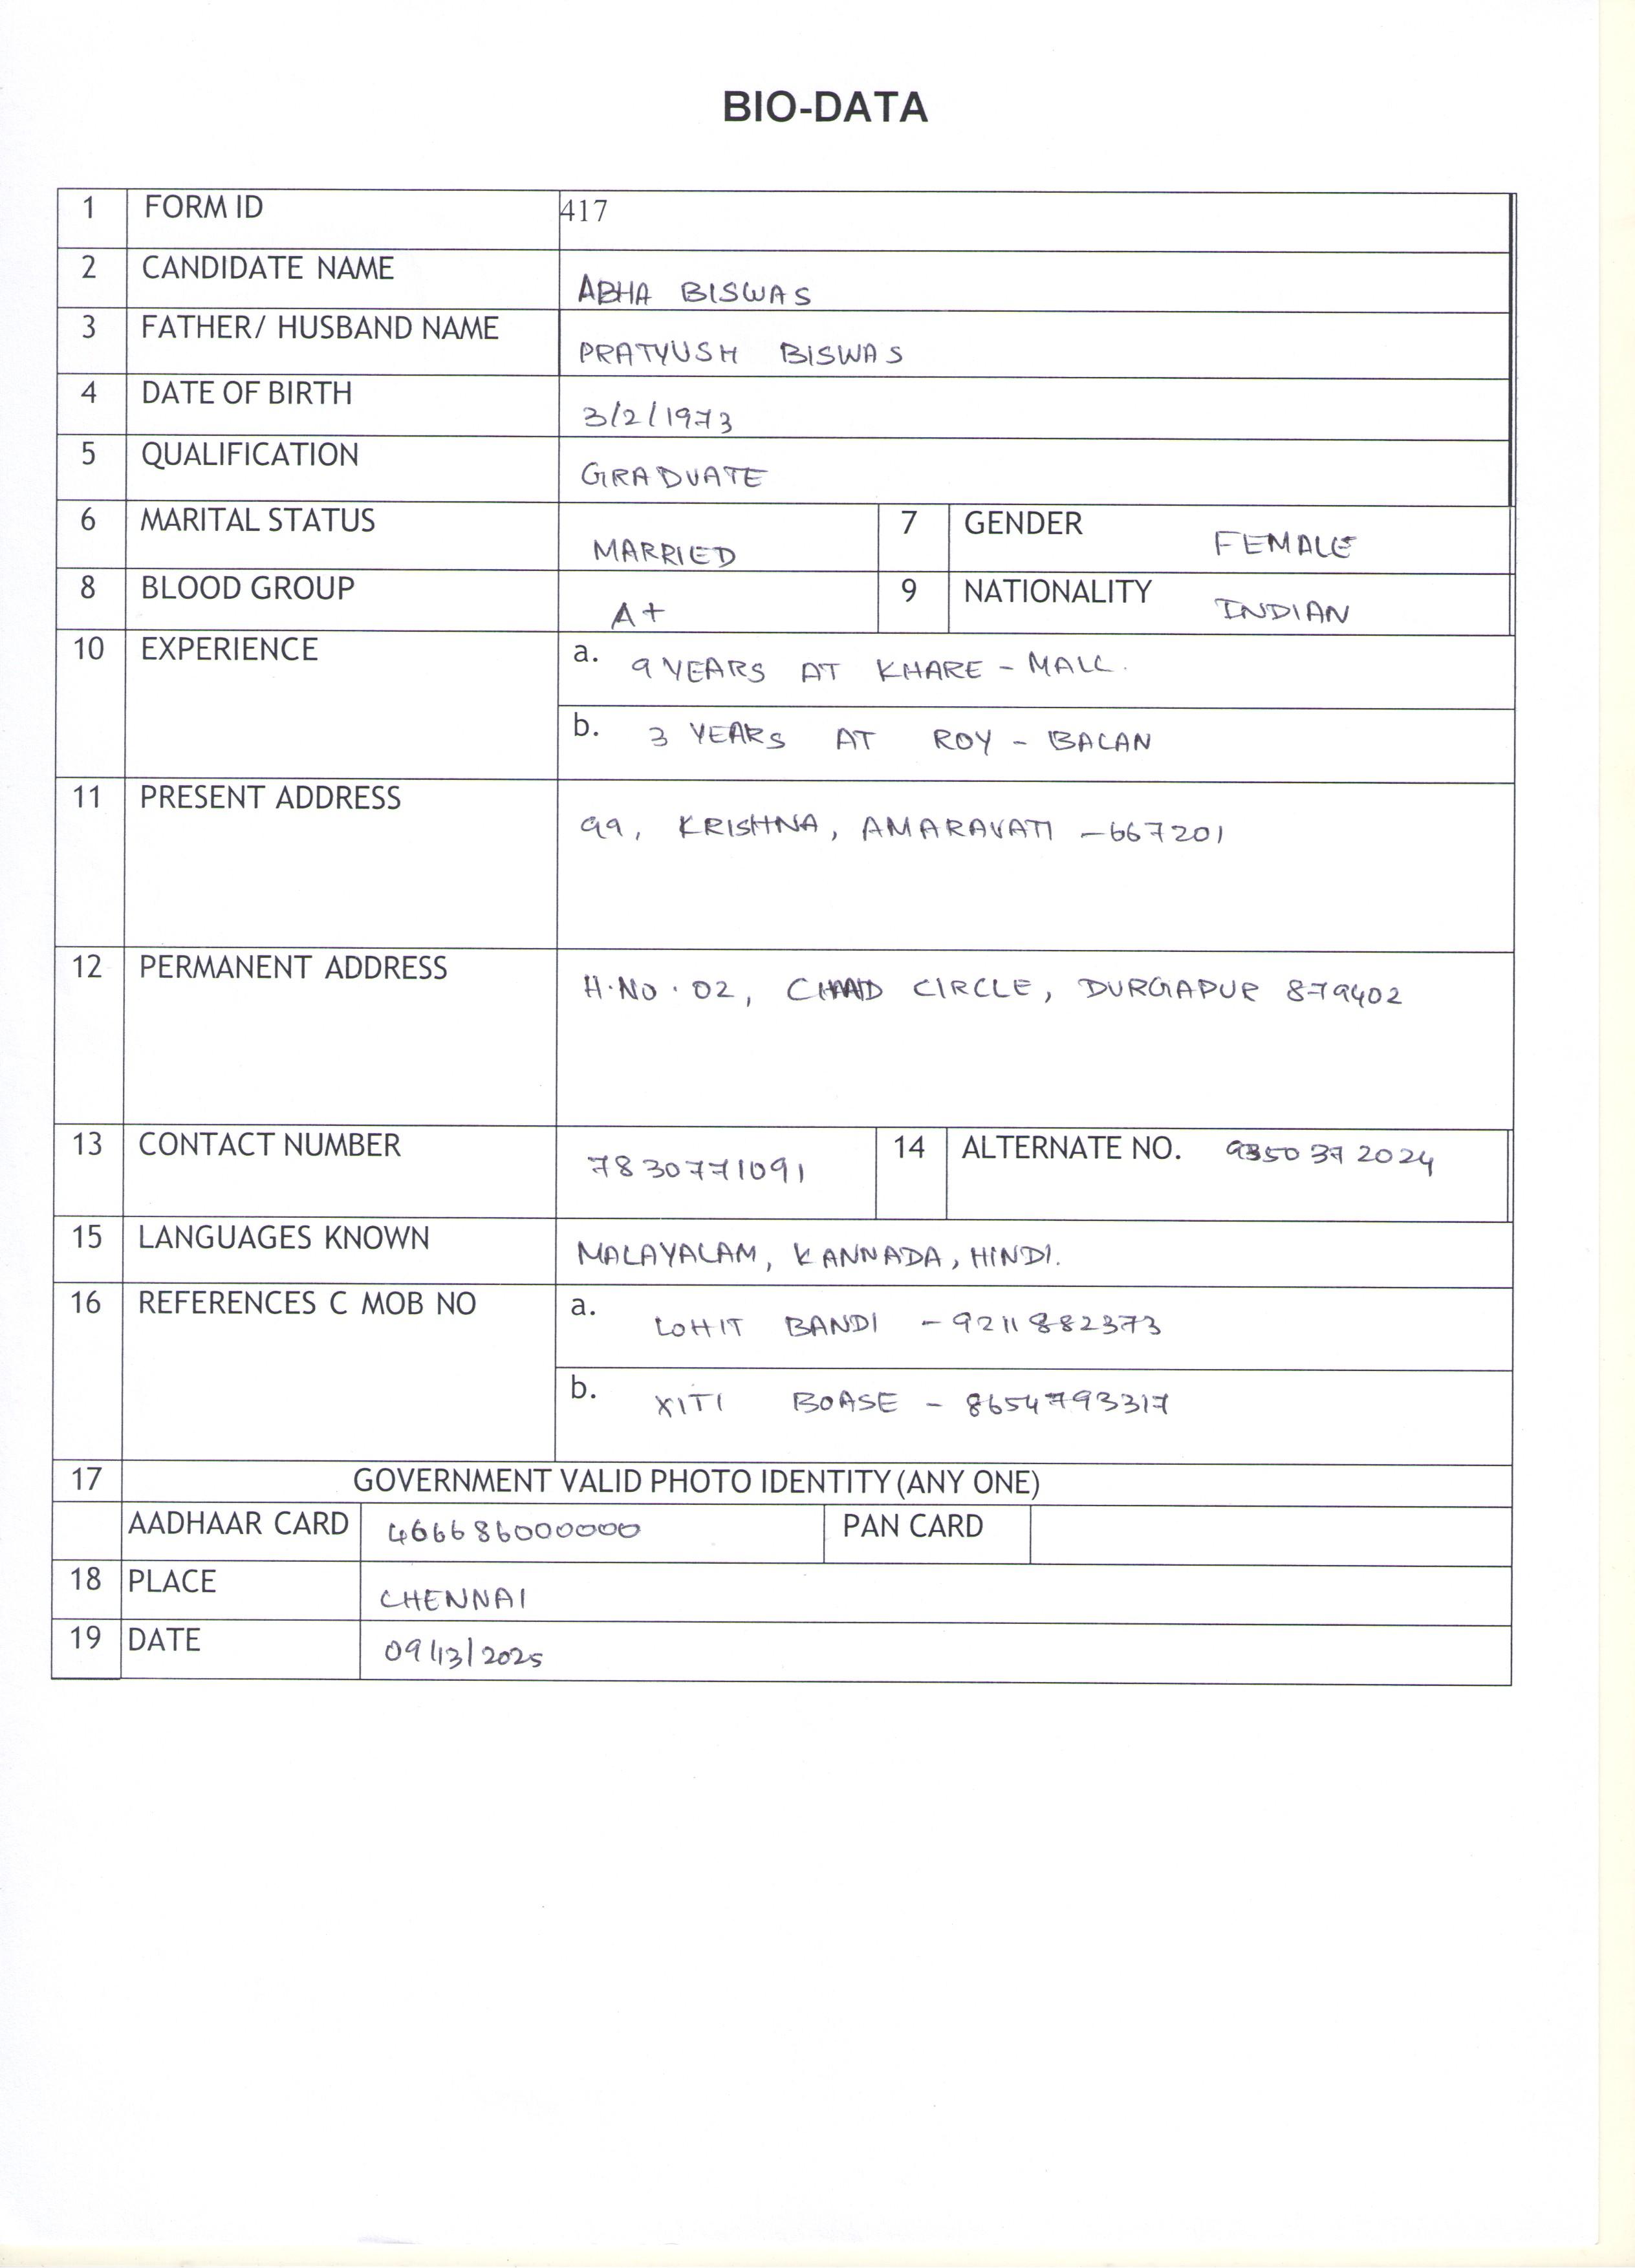 BIO-DATA
1 FORM ID 417
2 CANDIDATE NAME ABHA BISWAS
3 FATHER/ HUSBAND NAME PRATYUSH BISWAS
4 DATE OF BIRTH 3/2/1973
5 QUALIFICATION GRADUATE
6 MARITAL STATUS MARRIED 7 GENDER FEMALE
8 BLOOD GROUP A+ 9 NATIONALITY INDIAN
10 EXPERIENCE a. 9 YEARS AT KHARE - MALL.
b. 3 YEARS AT ROY - BALAN
11 PRESENT ADDRESS 99, KRISHNA, AMARAVATI - 667201
12 PERMANENT ADDRESS H.NO. 02, CIRCLE, DURGAPUR 879402
13 CONTACT NUMBER 7830771091 14 ALTERNATE NO. 9350372024
15 LANGUAGES KNOWN MALAYALAM, KANNADA, HINDI.
16 REFERENCES C MOB NO a. LOHIT BANDI - 9211882373
b. XITI BOASE - 8654793317
17 GOVERNMENT VALID PHOTO IDENTITY (ANY ONE)
AADHAAR CARD 466686000000 PAN CARD
18 PLACE CHENNAI
19 DATE 09/13/2025